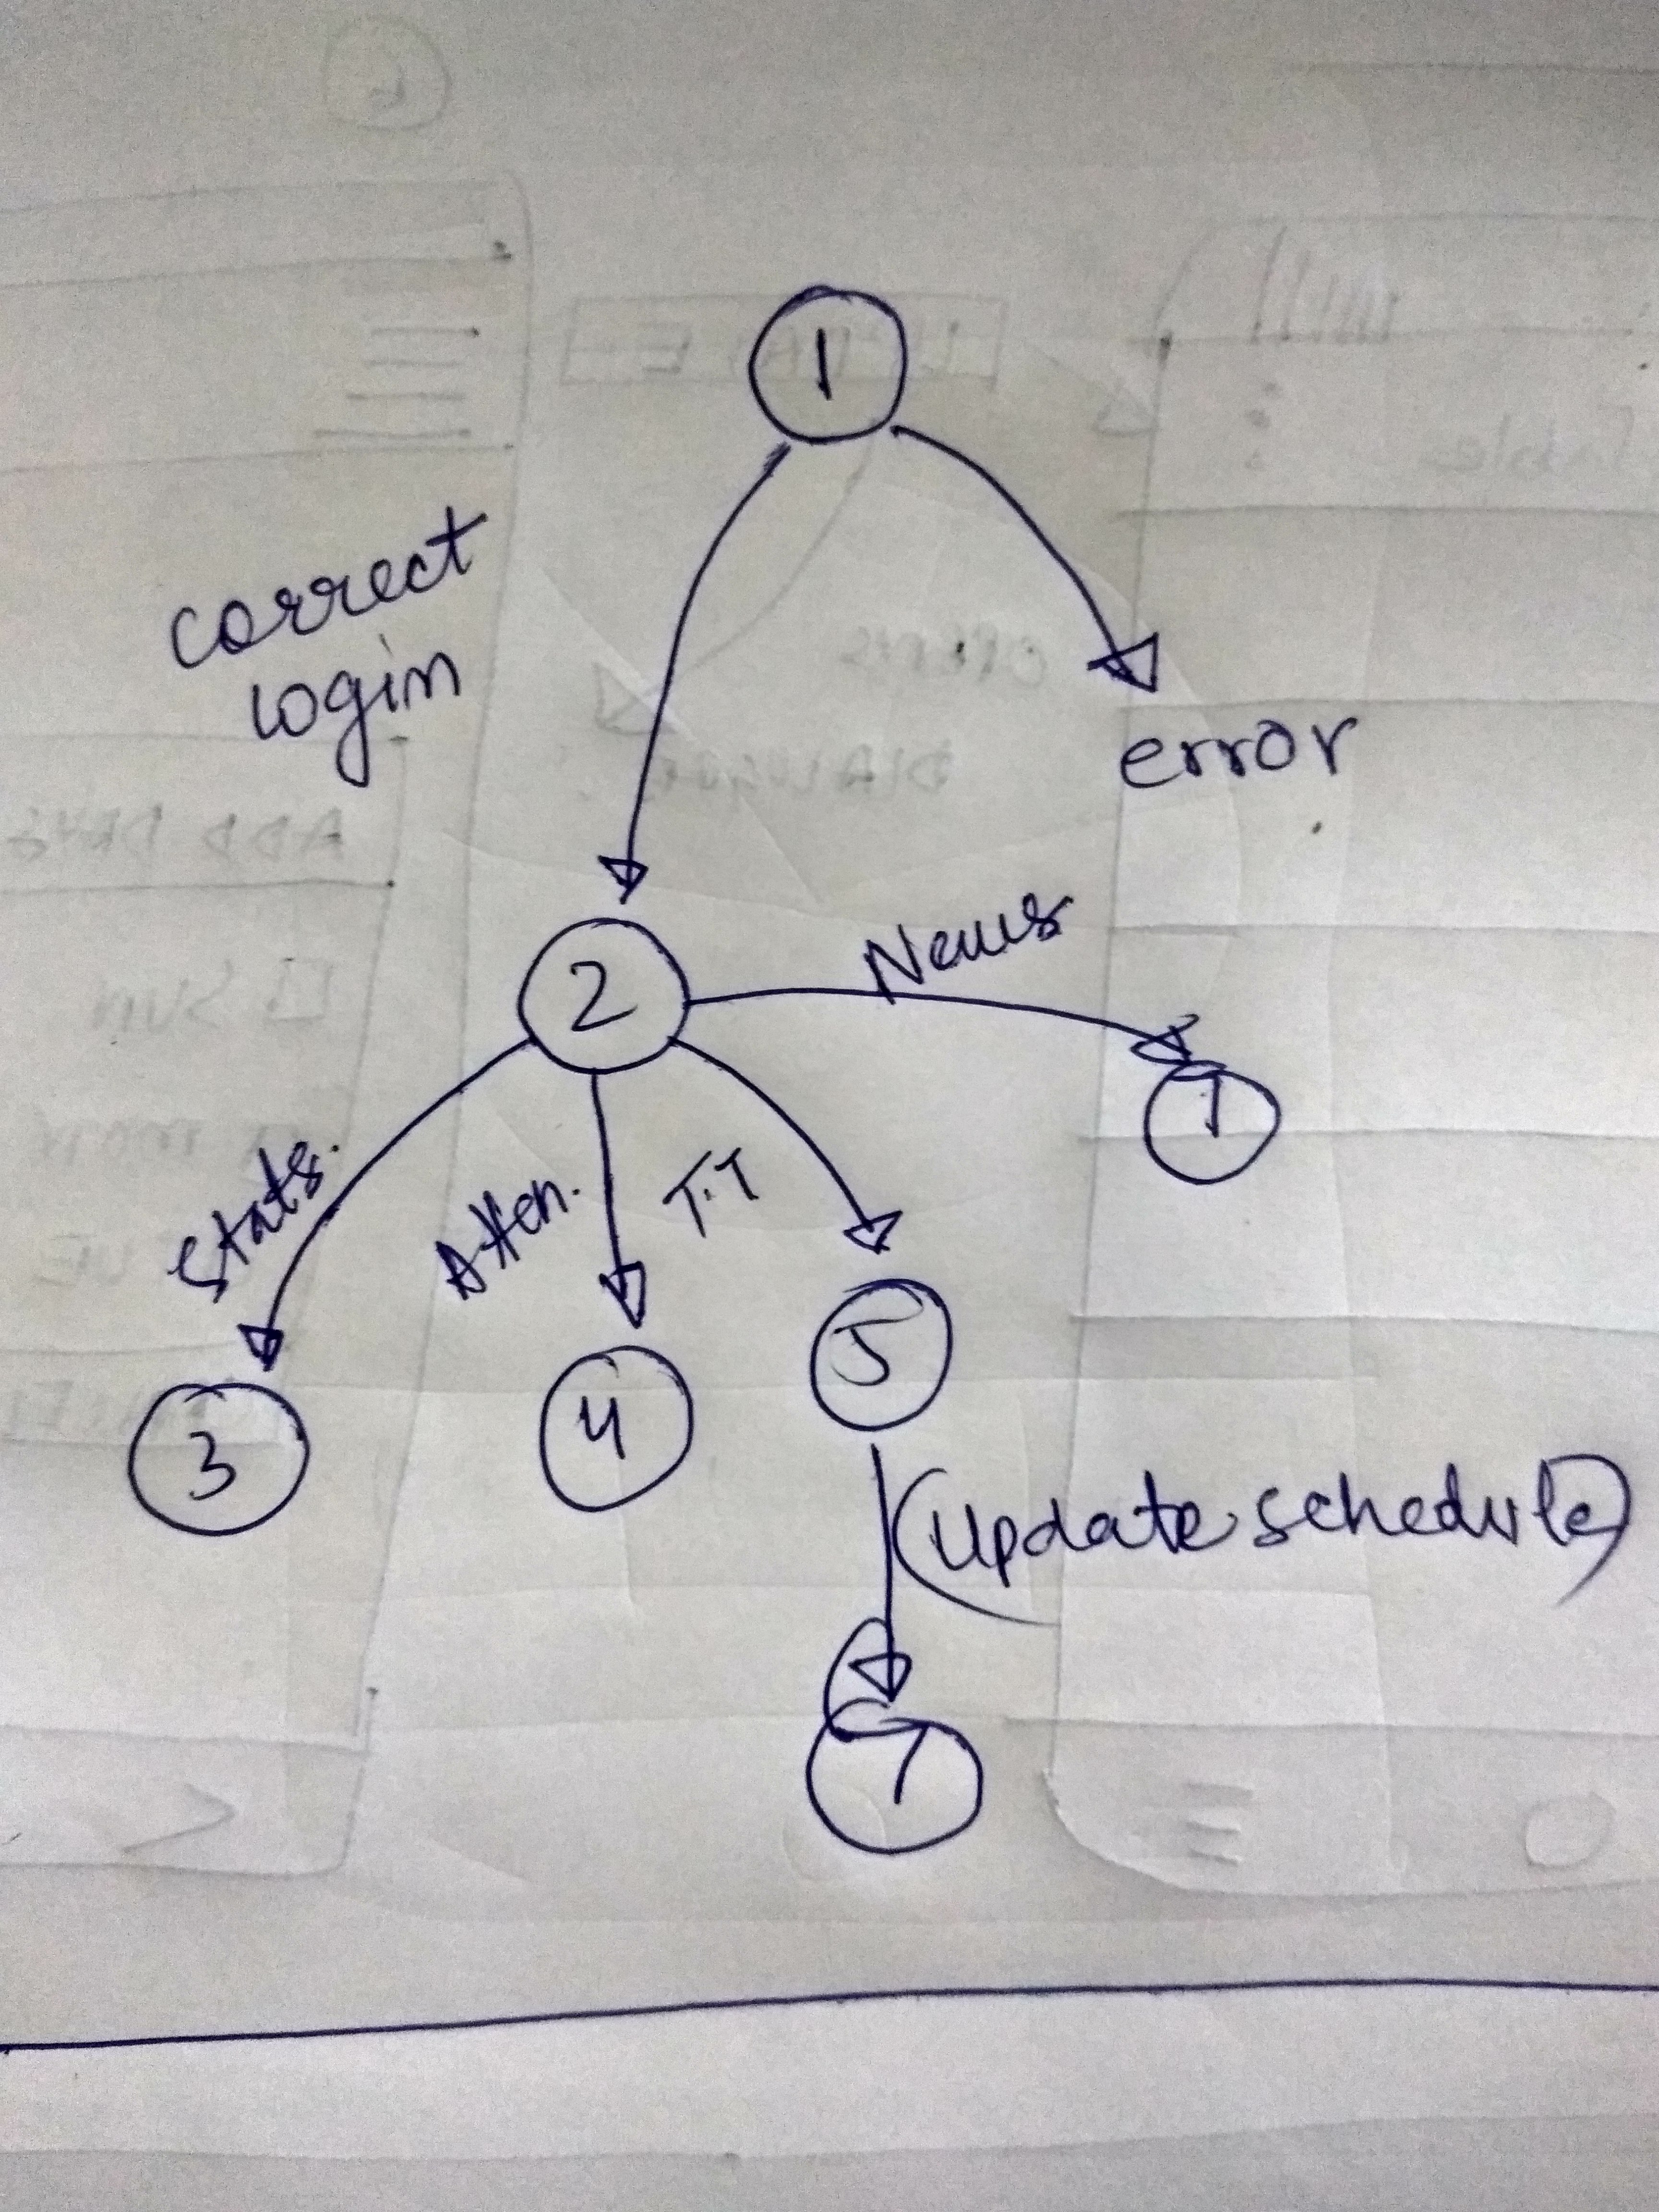 1
correct
login
error
News
2
Stats.
Atten.
T.T
5
3
4
(Update schedule)
7